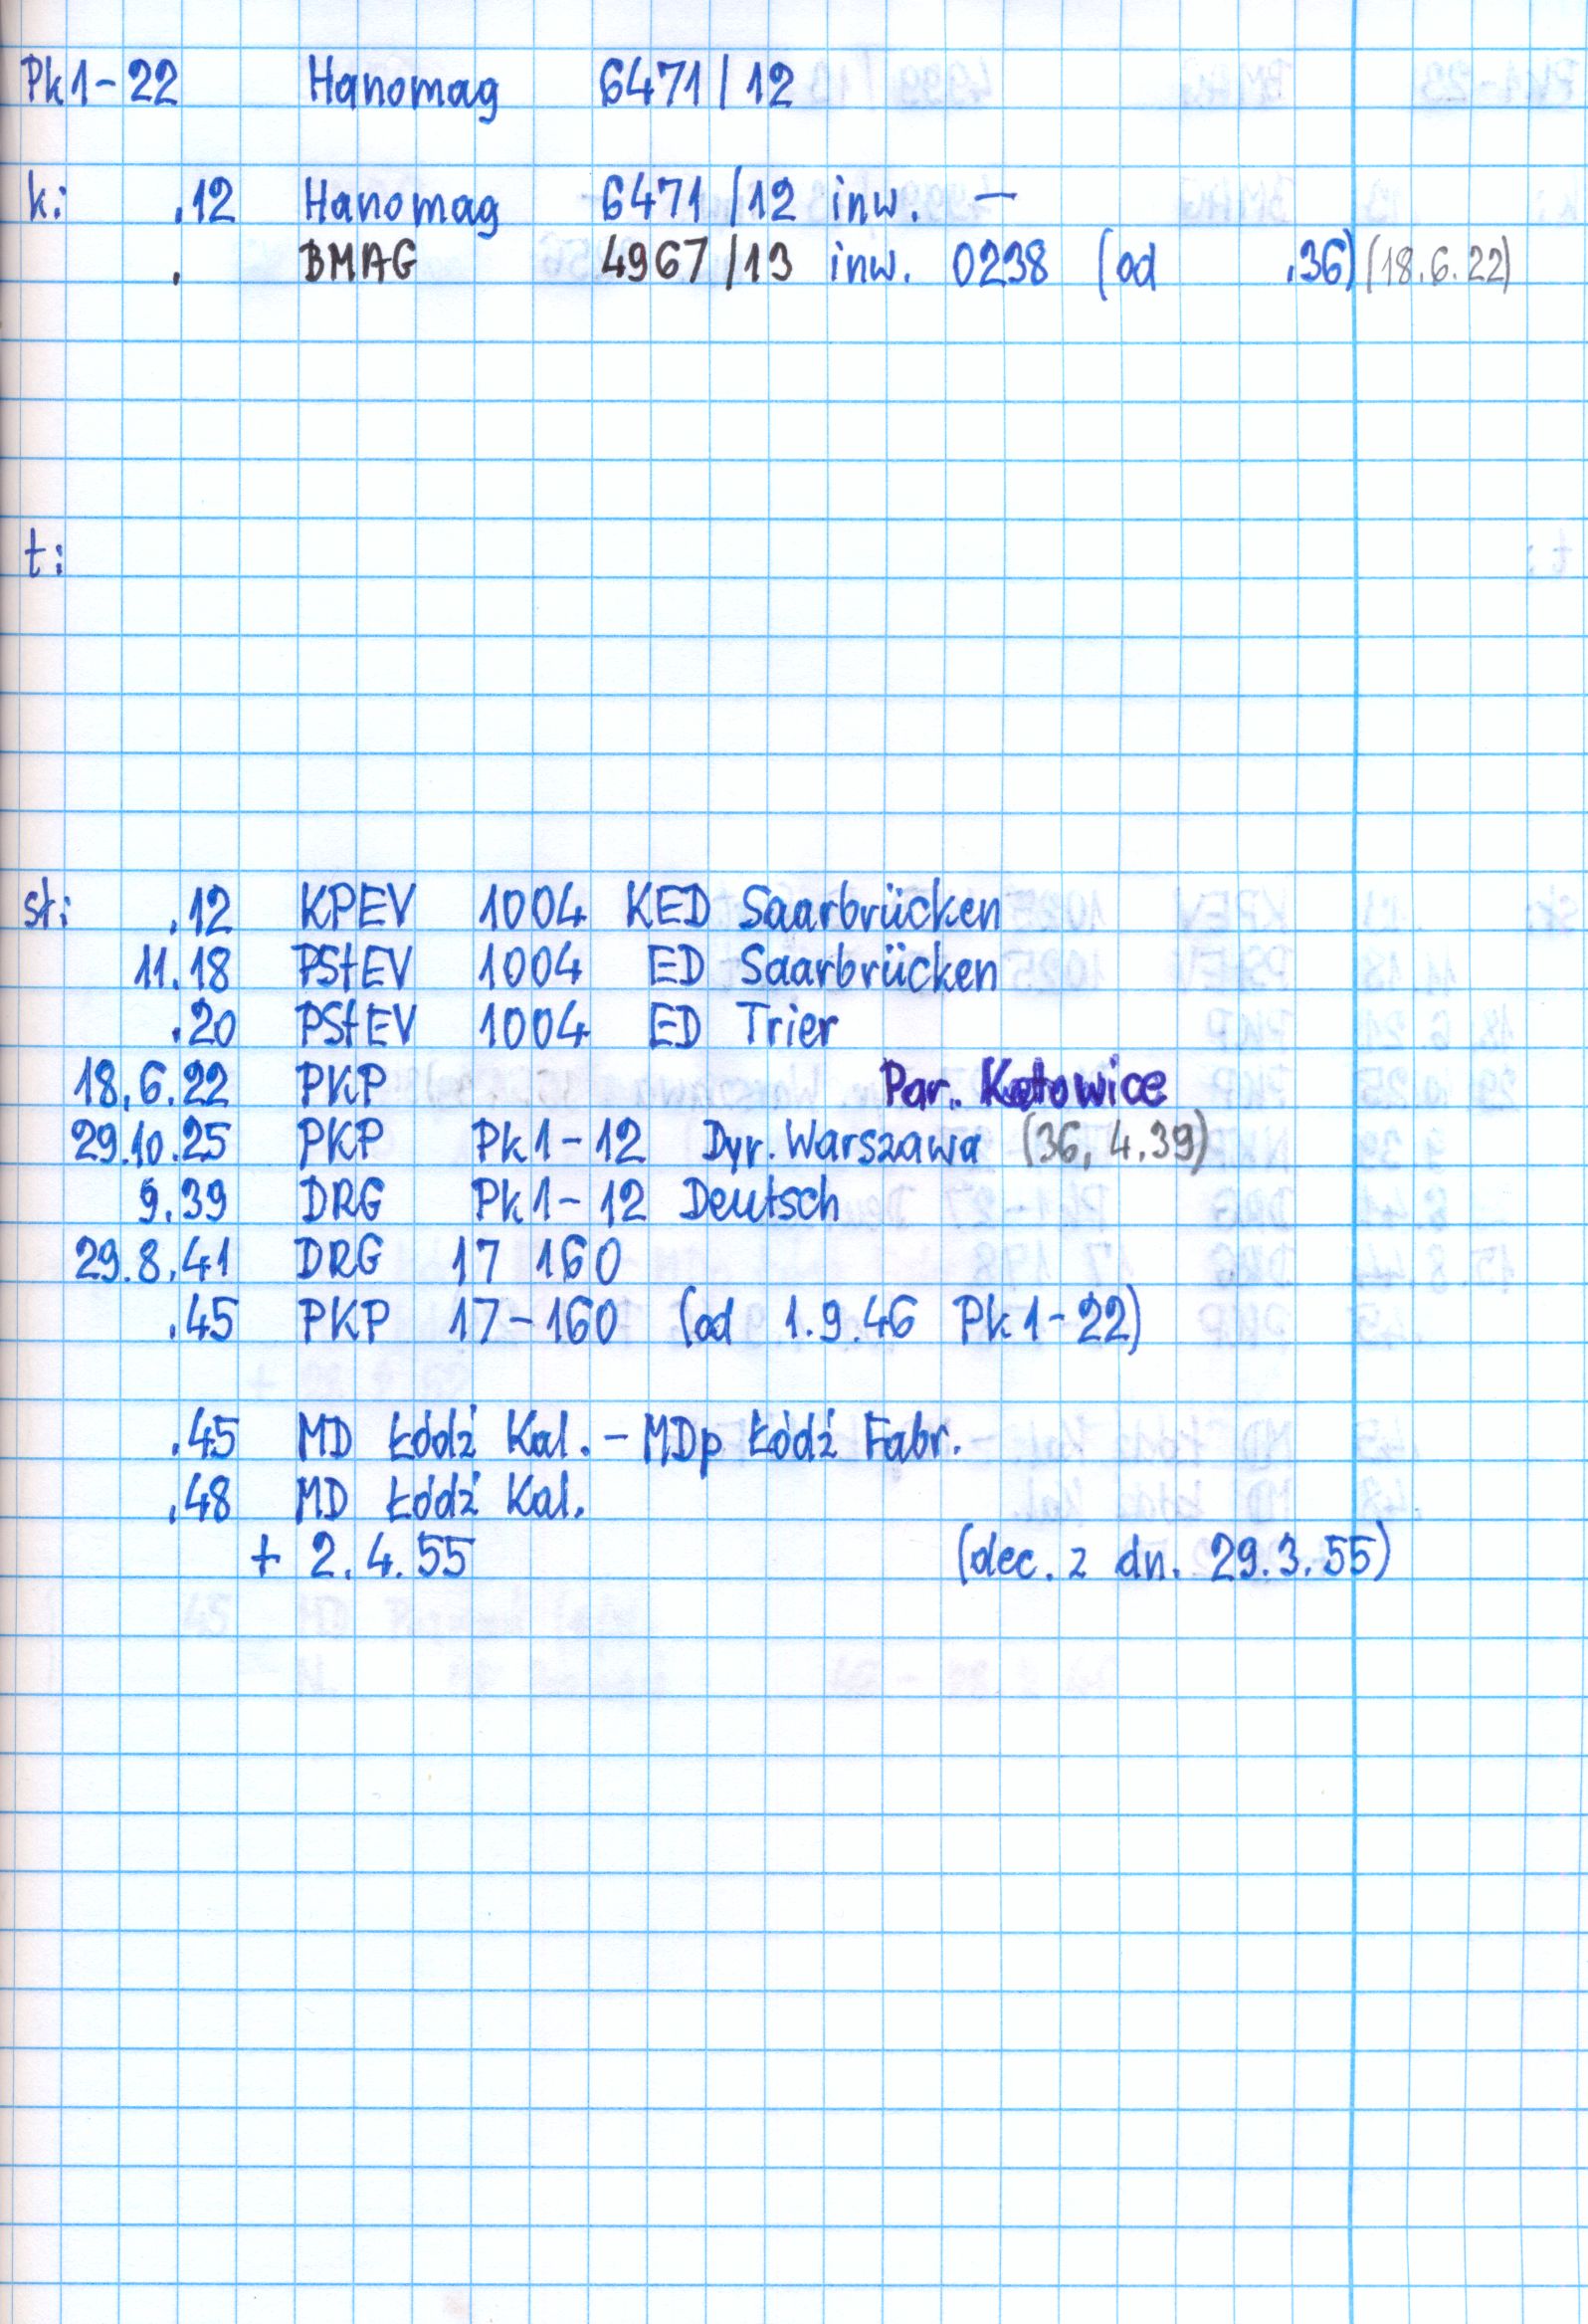 Pk1-22 Hanomag 6471/12
k: .12 Hanomag 6471/12 inw. —
. BMAG 4967/13 inw. 0238 (od .36) (18.6.22)
t:
st: .12 KPEV 1004 KED Saarbrücken
11.18 PStEV 1004 ED Saarbrücken
.20 PStEV 1004 ED Trier
18.6.22 PKP Par. Katowice
29.10.25 PKP Pk1-12 Dyr. Warszawa (36, 4.39)
9.39 DRG Pk1-12 Deutsch
29.8.41 DRG 17 160
.45 PKP 17-160 (od 1.9.46 Pk1-22)
.45 MD Łódź Kal. - MDp Łódź Fabr.
.48 MD Łódź Kal.
+ 2.4.55 (dec. z dn. 29.3.55)